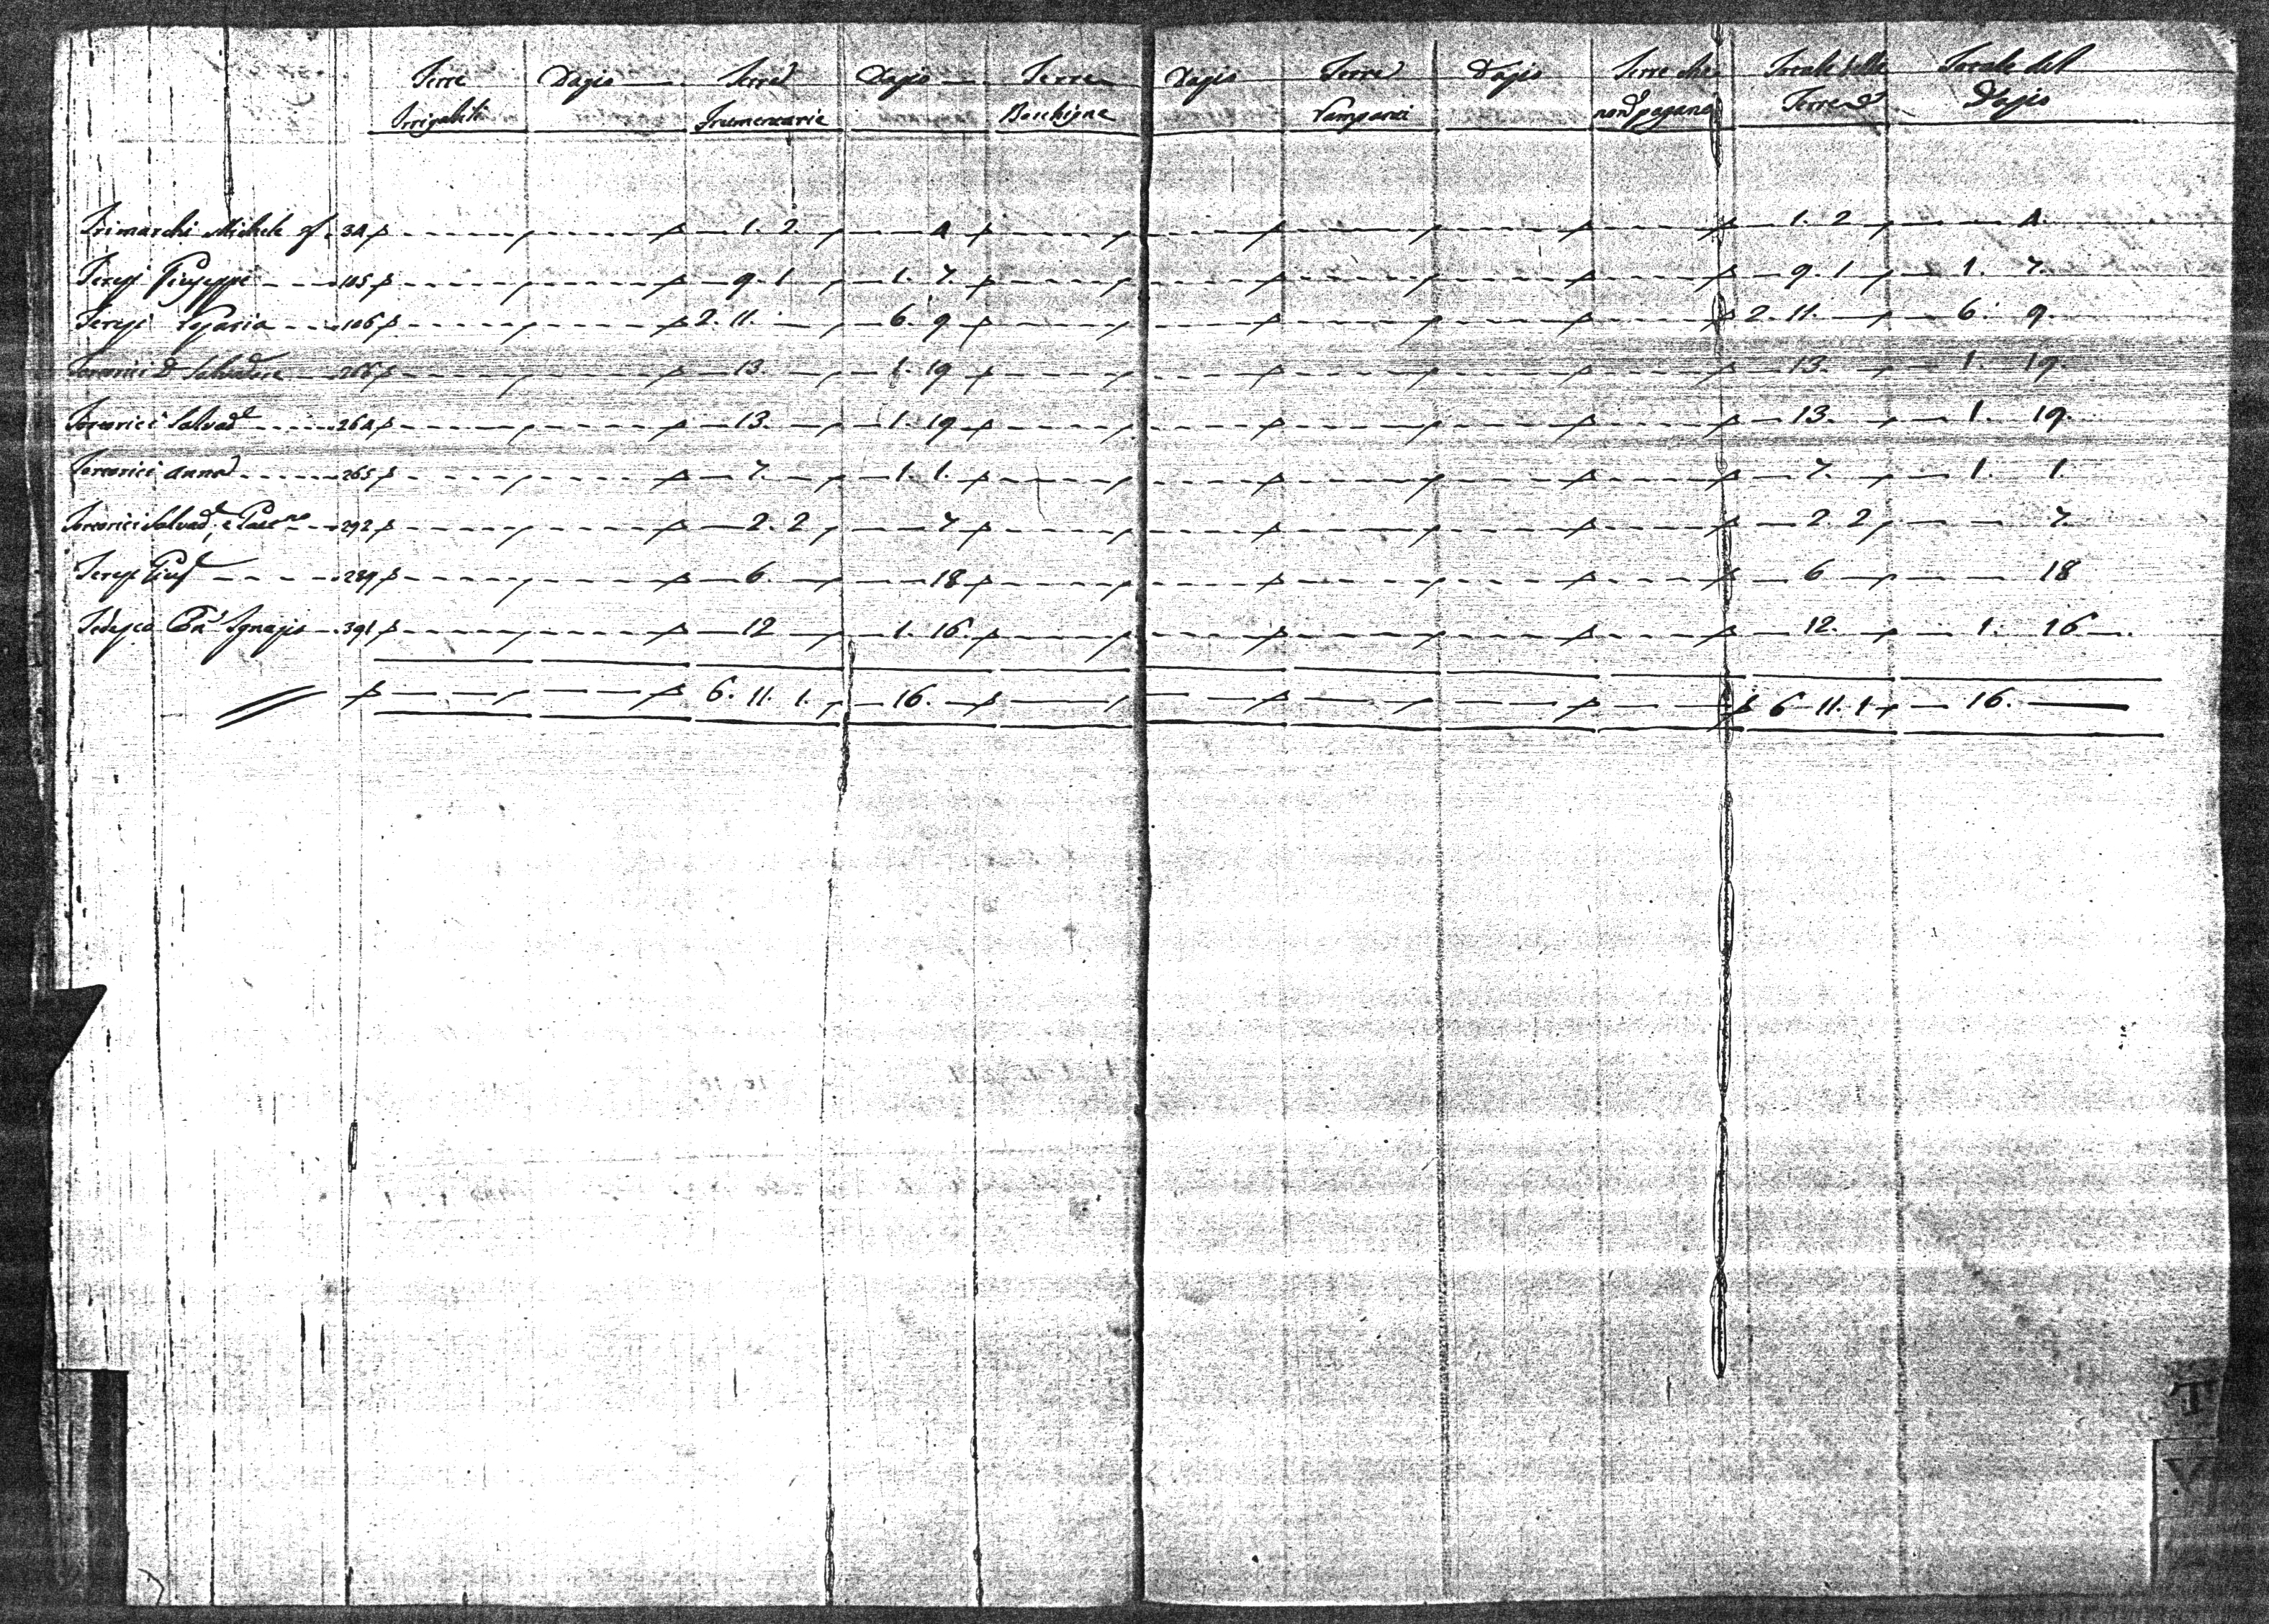 Terre Dazio Terre Dazio Terre Dazio Terre Dazio Terre che Totale delle Totale del
Irrigabili Frumentarie Boschigne Vampanti non pagano Terre Dazio
Trimarchi Michele 34 1. 2 4 1. 2 4.
Teresi Giuseppe 105 9. 1 1. 7. 9. 1 1. 7.
Teresi Rosaria 106 2. 11. 6. 9 2. 11. 6. 9.
Tortorici D. Salvadore 13. 1. 19 13. 1. 19.
Tortorici Salvad.e 264 13. 1. 19 13. 1. 19.
Tortorici Anna 265 7. 1. 1. 7. 1. 1.
Tortorici Salvad.e e 292 2. 2 7 2. 2 7.
Teresi Gius.e 289 6 18 6 18
Tedesco Ignazio 391 12 1. 16. 12. 1. 16
6. 11. 1. 16. 6 11. 1 16.
T
V